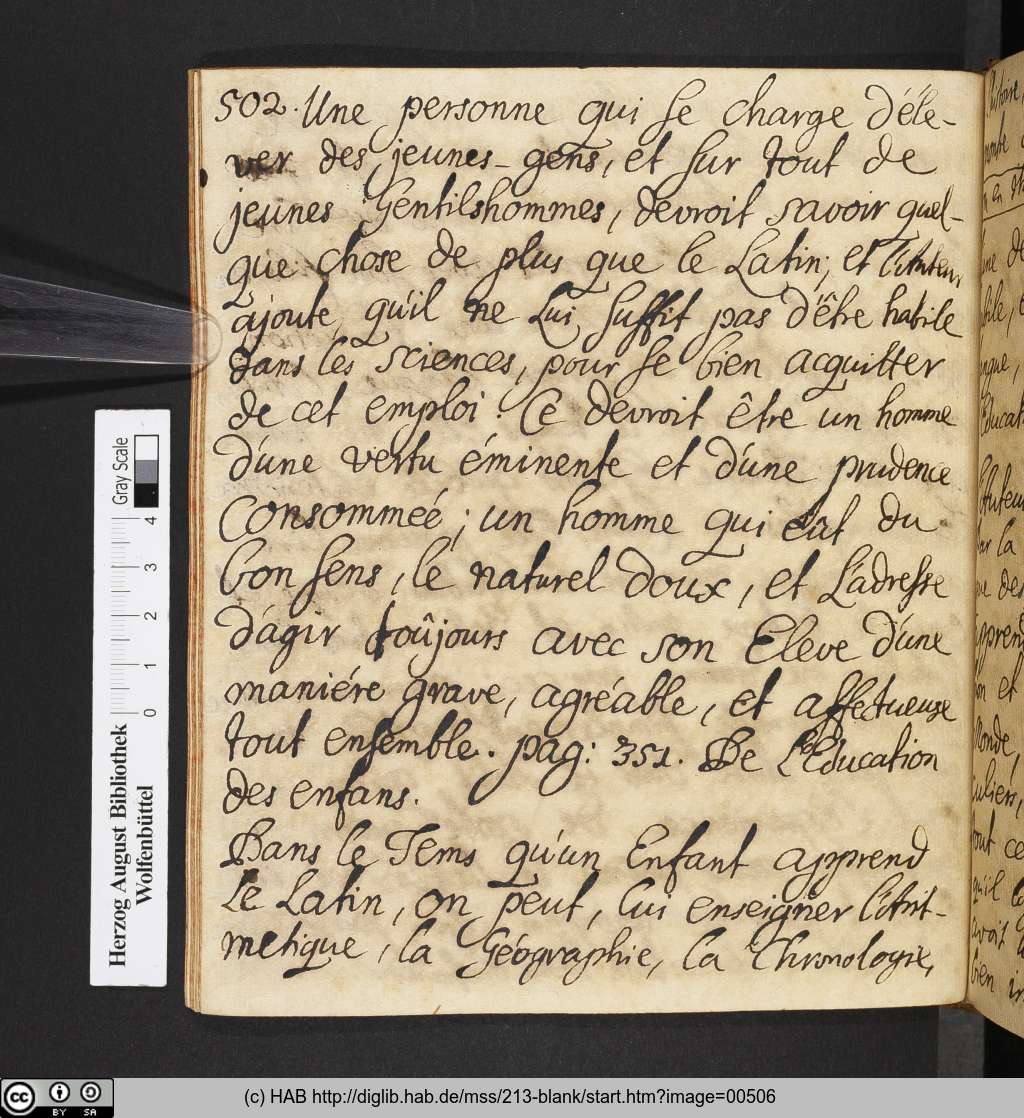 502. Une personne qui se charge d'éle-
ver des jeunes-gens, et sur tout de
jeunes Gentilshommes, devroit savoir quel-
que chose de plus que le Latin; et l'Auteur
ajoute, qu'il ne lui suffit pas d'être habile
dans les sciences, pour se bien acquitter
de cet emploi: Ce devroit être un homme
d'une vertu éminente et d'une prudence
Consommée; un homme qui eût du
bon sens, le naturel doux, et L'adresse
d'agir toûjours avec son Eleve d'une
maniére grave, agréable, et affectueuse
tout ensemble. pag: 351. De L'Education
des enfans.
Dans le Tems qu'un Enfant apprend
Le Latin, on peut, lui enseigner l'Arit-
metique, la Géographie, la Chronologie,
Herzog August Bibliothek
Wolfenbüttel
0 1 2 3 4
Gray Scale
CC BY SA
(c) HAB http://diglib.hab.de/mss/213-blank/start.htm?image=00506